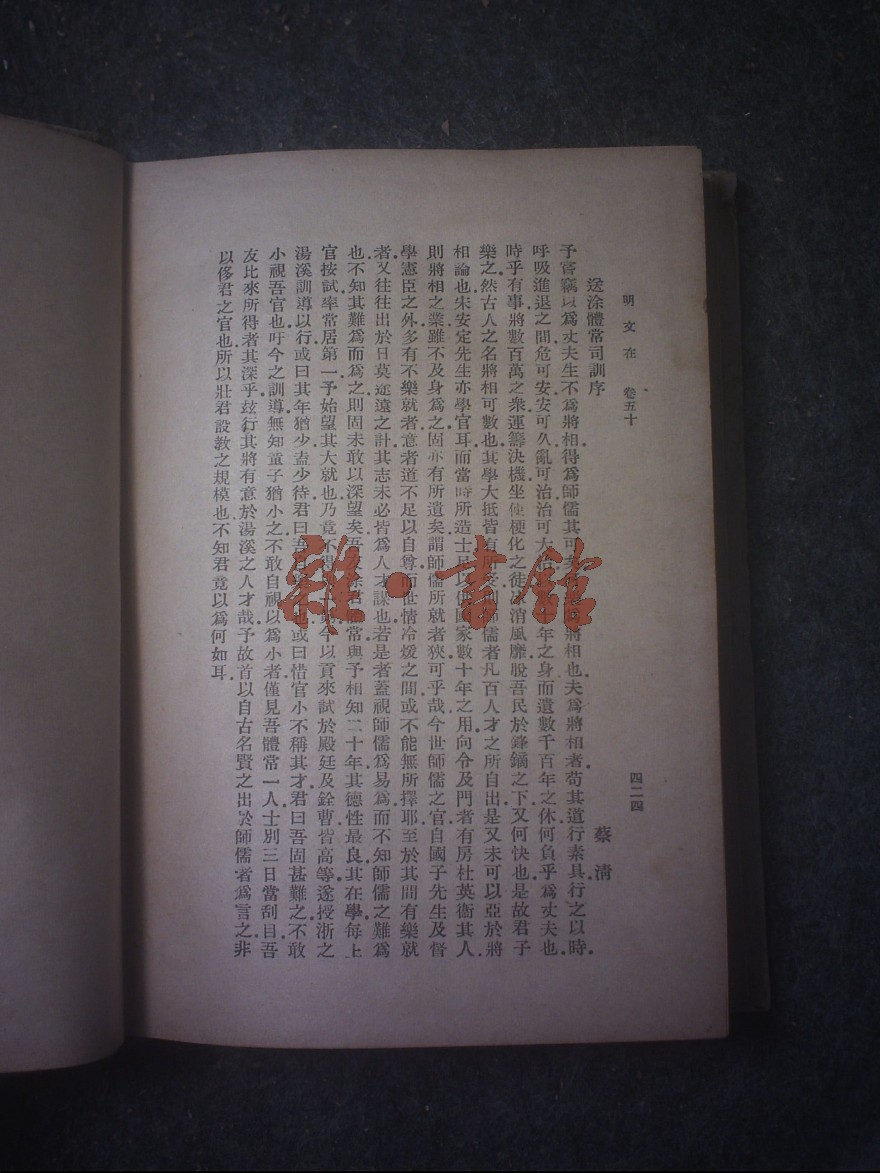 明文在 卷五十 四二四
送涂體常司訓序 蔡清
予嘗竊以爲丈夫生不爲將相得爲師儒其可矣 爲將相也夫爲將相者苟其道行素具行之以時
呼吸進退之間危可安安可久亂可治治可大 年之身而遺數千百年之休何負乎爲丈夫也
時乎有事將數百萬之衆運籌決機坐使梗化之徒冰消風靡脫吾民於鋒鏑之下又何快也是故君子
樂之然古人之名將相可數也其學大抵皆有所 師儒者凡百人才之所自出是又未可以亞於將
相論也宋安定先生亦學官耳而當時所造士足以供國家數十年之用向令及門者有房杜英衞其人
則將相之業雖不及身爲之固亦有所遺矣謂師儒所就者狹可乎哉今世師儒之官自國子先生及督
學憲臣之外多有不樂就者意者道不足以自尊而世情冷煖之間或不能無所擇耶至於其間有樂就
者又往往出於日莫途遠之計其志未必皆爲人才謀也若是者蓋視師儒爲易爲而不知師儒之難爲
也不知其難爲而爲之則固未敢以深望矣吾友涂君體常與予相知二十年其德性最良其在學每上
官按試率常居第一予始望其大就也乃竟不得 今以貢來試於殿廷及銓曹皆高等遂授浙之
湯溪訓導以行或曰其年猶少盍少待君曰吾 也或曰惜官小不稱其才君曰吾固甚難之不敢
小視吾官也吁今之訓導無知童子猶小之不敢自視以爲小者僅見吾體常一人士別三日當刮目吾
友比來所得者其深乎玆行其將有意於湯溪之人才哉予故首以自古名賢之出於師儒者爲言之非
以侈君之官也所以壯君設教之規模也不知君竟以爲何如耳
雜·書館